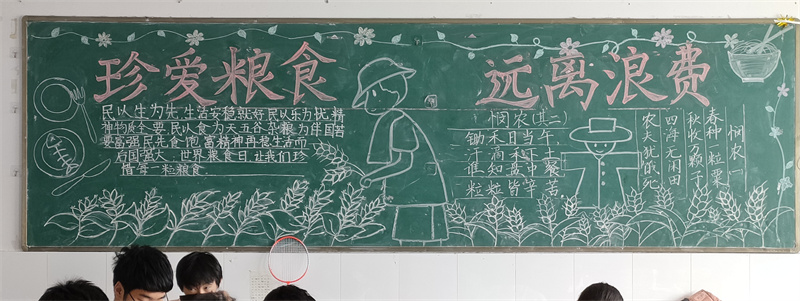 珍爱粮食
远离浪费
民以生为先,生活安稳就好,民以乐为忧,精
神物质全要,民以食为天五谷杂粮为伴国若
要富强民先食饱富精神再稳生活而
后国强大,世界粮食日,让我们珍
惜每一粒粮食
悯农(其二)
锄禾日当午
汗滴禾下土
谁知盘中餐
粒粒皆辛苦
悯农一
春种一粒粟
秋收万颗子
四海无闲田
农夫犹饿死